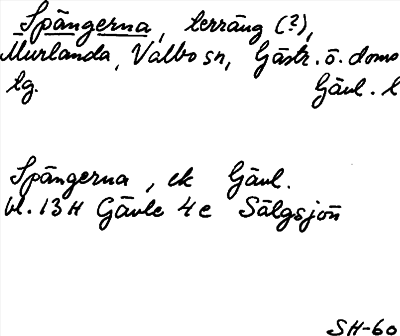 Spångerna, terräng (?),
Murlanda, Valbo sn, Gästr. ö. doms
tg. Gävl. l
Spångerna, ek Gävl.
bl. 13H Gävle 4e Sälgsjön
SH-60